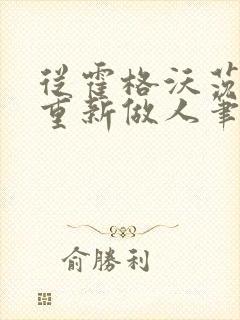 從霍格沃茨
重新做人筆
俞勝利